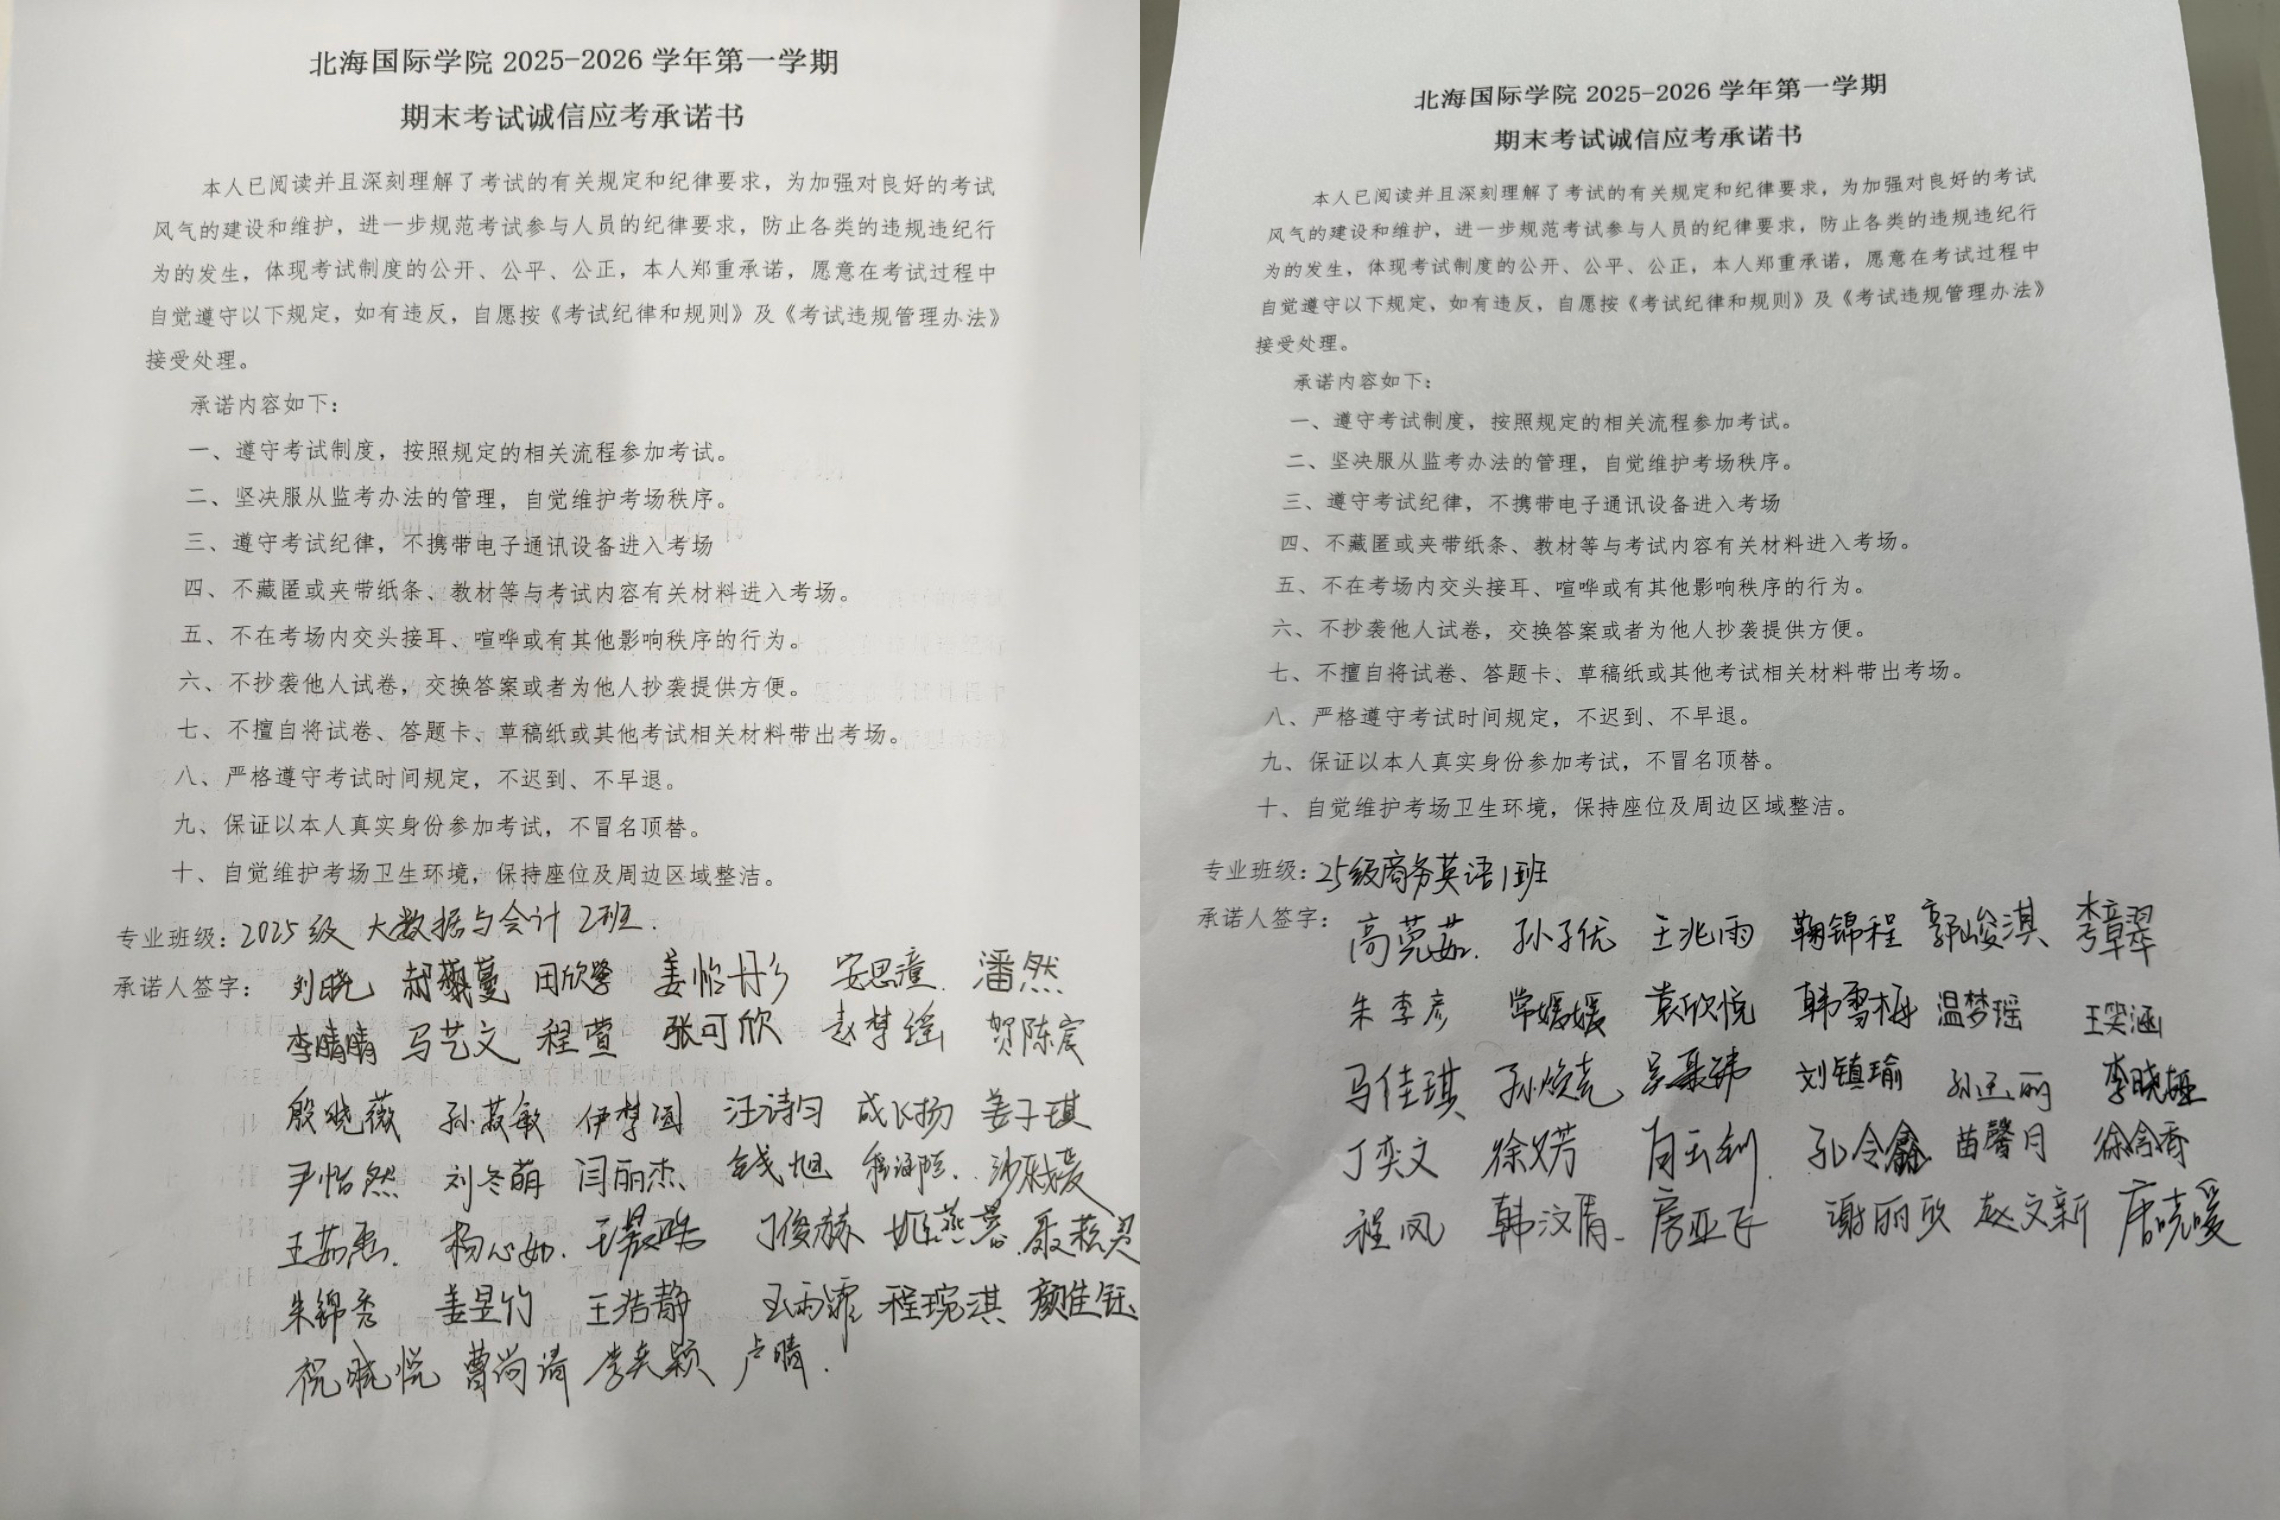 北海国际学院 2025-2026 学年第一学期
期末考试诚信应考承诺书
本人已阅读并且深刻理解了考试的有关规定和纪律要求，为加强对良好的考试
风气的建设和维护，进一步规范考试参与人员的纪律要求，防止各类的违规违纪行
为的发生，体现考试制度的公开、公平、公正，本人郑重承诺，愿意在考试过程中
自觉遵守以下规定，如有违反，自愿按《考试纪律和规则》及《考试违规管理办法》
接受处理。
承诺内容如下：
一、遵守考试制度，按照规定的相关流程参加考试。
二、坚决服从监考办法的管理，自觉维护考场秩序。
三、遵守考试纪律，不携带电子通讯设备进入考场
四、不藏匿或夹带纸条、教材等与考试内容有关材料进入考场。
五、不在考场内交头接耳、喧哗或有其他影响秩序的行为。
六、不抄袭他人试卷，交换答案或者为他人抄袭提供方便。
七、不擅自将试卷、答题卡、草稿纸或其他考试相关材料带出考场。
八、严格遵守考试时间规定，不迟到、不早退。
九、保证以本人真实身份参加考试，不冒名顶替。
十、自觉维护考场卫生环境，保持座位及周边区域整洁。
专业班级：2025级 大数据与会计 2班.
承诺人签字：刘晓 田欣鹭 姜怡彤 安思潼 潘然
李晴晴 马艺文 程萱 张可欣 赵梦瑶 贺陈宸
殷晓薇 孙菽敏 伊梦圆 汪诗匀 成飞扬 姜子琪
尹怡然 刘冬萌 闫丽杰 钱旭
王茹惠 杨心如 丁俊赫 姬燕蓉
朱锦秀 姜昱竹 王浩静 王雨霏 程琬淇 颜佳钰
祝晓悦 曹尚清 李奕颖 卢晴.
北海国际学院 2025-2026 学年第一学期
期末考试诚信应考承诺书
本人已阅读并且深刻理解了考试的有关规定和纪律要求，为加强对良好的考试
风气的建设和维护，进一步规范考试参与人员的纪律要求，防止各类的违规违纪行
为的发生，体现考试制度的公开、公平、公正，本人郑重承诺，愿意在考试过程中
自觉遵守以下规定，如有违反，自愿按《考试纪律和规则》及《考试违规管理办法》
接受处理。
承诺内容如下：
一、遵守考试制度，按照规定的相关流程参加考试。
二、坚决服从监考办法的管理，自觉维护考场秩序。
三、遵守考试纪律，不携带电子通讯设备进入考场
四、不藏匿或夹带纸条、教材等与考试内容有关材料进入考场。
五、不在考场内交头接耳、喧哗或有其他影响秩序的行为。
六、不抄袭他人试卷，交换答案或者为他人抄袭提供方便。
七、不擅自将试卷、答题卡、草稿纸或其他考试相关材料带出考场。
八、严格遵守考试时间规定，不迟到、不早退。
九、保证以本人真实身份参加考试，不冒名顶替。
十、自觉维护考场卫生环境，保持座位及周边区域整洁。
专业班级：25级商务英语1班
承诺人签字：高菀茹. 孙子优 王兆雨 鞠锦程 郭峻淇 李翠翠
朱李彦 常媛媛 袁欣悦 韩雪梅 温梦瑶 王笑涵
马佳琪 孙焕亮 刘镇瑜 孙玉丽 李晓娅
丁奕文 徐义芳 孔令鑫 苗馨月 徐含香
程凤 韩汶倩 房亚飞 谢丽欣 赵文新 唐晓媛